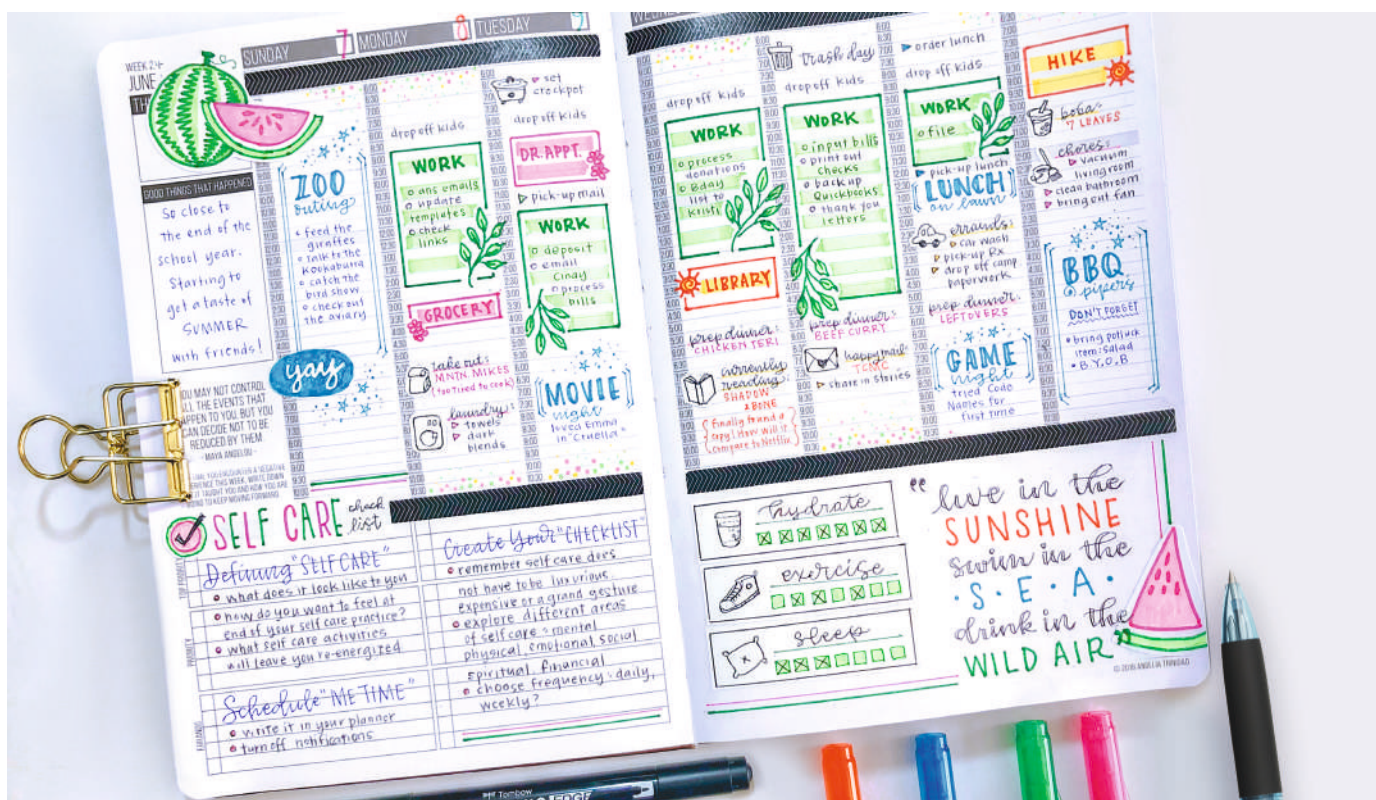 SUNDAY 7
MONDAY 8
TUESDAY 9
WEEK 24
JUNE
GOOD THINGS THAT HAPPENED
So close to
the end of the
school year.
Starting to
get a taste of
SUMMER
with friends!
YOU MAY NOT CONTROL
ALL THE EVENTS THAT
HAPPEN TO YOU, BUT YOU
CAN DECIDE NOT TO BE
REDUCED BY THEM.
- MAYA ANGELOU -
ZOO
outing
feed the
giraffes
talk to the
Kookaburra
catch the
bird show
check out
the aviary
yay
drop off kids
WORK
ans emails
update
templates
check
links
GROCERY
take out:
MNTN. MIKES
(too tired to cook)
laundry:
towels
dark
blends
set
crockpot
drop off kids
DR. APPT.
pick-up mail
WORK
deposit
email
Cindy
process
bills
MOVIE
night
loved Emma
in "Cruella"
drop off kids
WORK
process
donations
Bday
list to
Kristi
LIBRARY
prep dinner:
CHICKEN TERI.
currently
reading:
SHADOW
& BONE
Finally found a
copy! How will it
compare to Netflix
trash day
drop off kids
WORK
input bills
print out
checks
backup
Quickbooks
thank you
letters
prep dinner:
BEEF CURRY
happy mail:
TCMC
share in stories
order lunch
drop off kids
WORK
file
pick-up lunch
LUNCH
on lawn
errands:
car wash
pick-up Rx
drop off camp
paperwork
prep dinner:
LEFTOVERS
GAME
night
tried
Code
Names for
first time
HIKE
boba:
7 LEAVES
chores:
vacuum
living room
clean bathroom
bring out fan
BBQ
@ pipers
DON'T FORGET
bring potluck
item: salad
B.Y.O.B
SELF CARE check
list
Defining "SELF CARE"
what does it look like to you
how do you want to feel at
end of your self care practice?
what self care activities
will leave you re-energized
Schedule "ME TIME"
write it in your planner
turn off notifications
Create Your "CHECKLIST"
remember self care does
not have to be luxurious
expensive or a grand gesture
explore different areas
of self care: mental
physical, emotional, social
spiritual, financial
choose frequency: daily,
weekly?
hydrate
exercise
sleep
"live in the
SUNSHINE
swim in the
·S·E·A·
drink in the
WILD AIR"
© 2018 ANGELIA TRINIDAD
Tombow